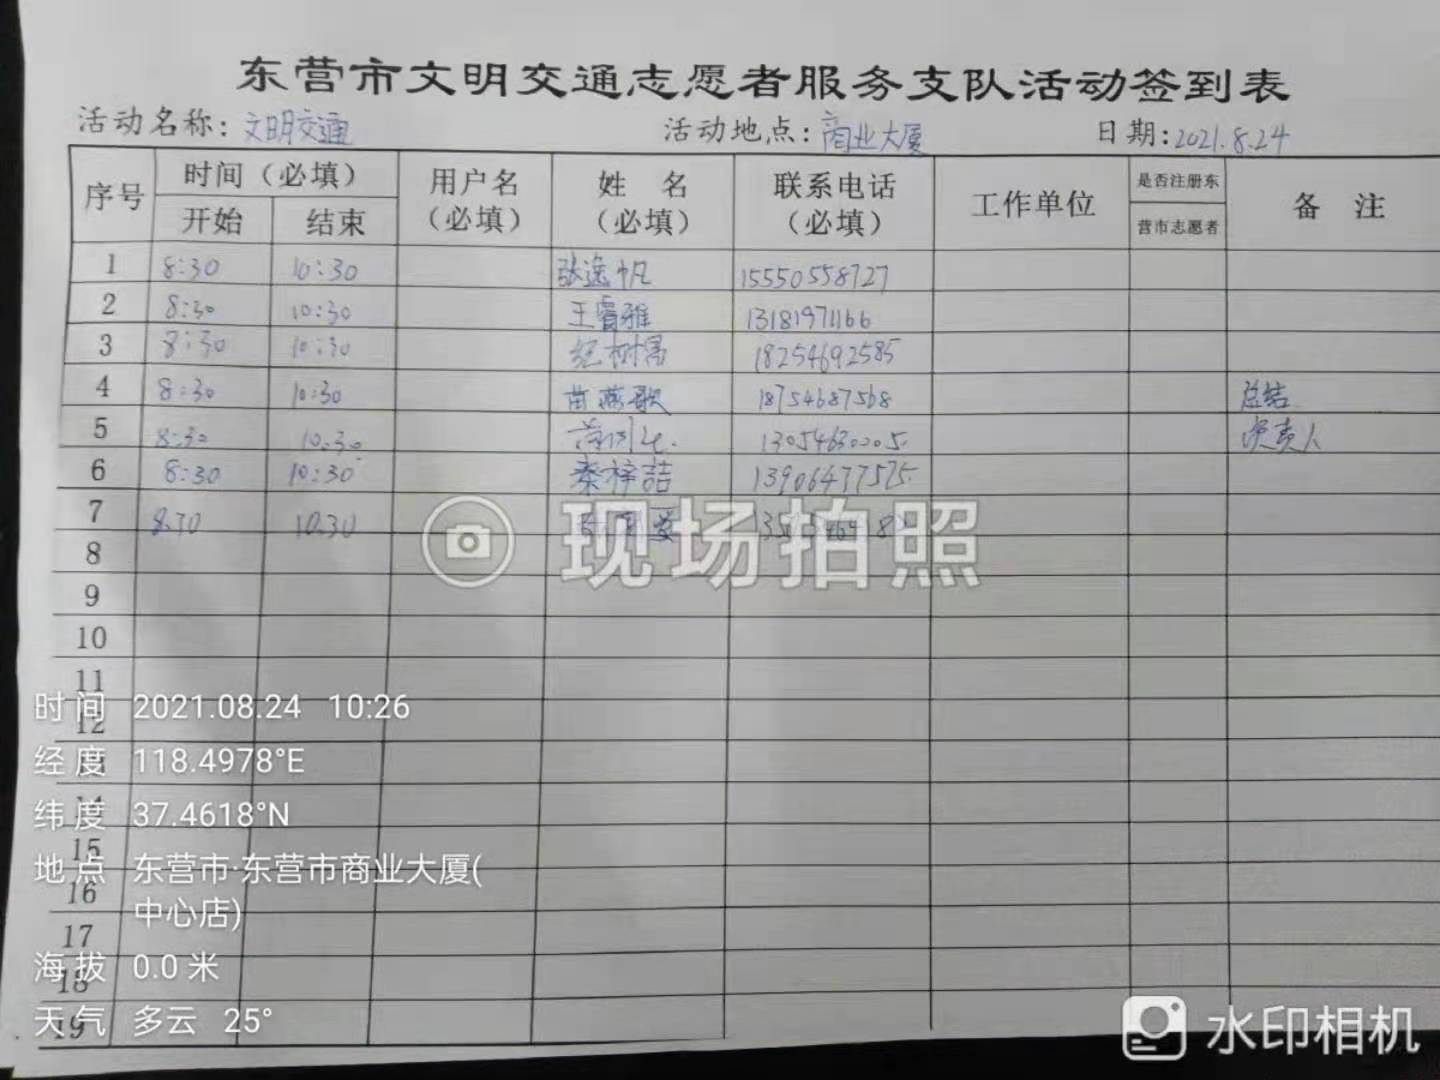 东营市文明交通志愿者服务支队活动签到表
活动名称：文明交通 活动地点：商业大厦 日期：2021.8.24
序号 时间（必填） 用户名（必填） 姓 名（必填） 联系电话（必填） 工作单位 是否注册东营市志愿者 备 注
开始 结束
1 8:30 10:30 张逸帆 15550558727
2 8:30 10:30 王睿雅 13181971166
3 8:30 10:30 纪树 18254692585
4 8:30 10:30 苗燕歌 18754687568 总结
5 8:30 10:30 13054630005 负责人
6 8:30 10:30 秦梓喆 13906477575
7 8:30 10:30
现场拍照
8
9
10
11
时间 2021.08.24 10:26
12
经度 118.4978°E
纬度 37.4618°N
15
地点 东营市·东营市商业大厦(
16
中心店)
17
海拔 0.0 米
18
天气 多云 25°
19
水印相机